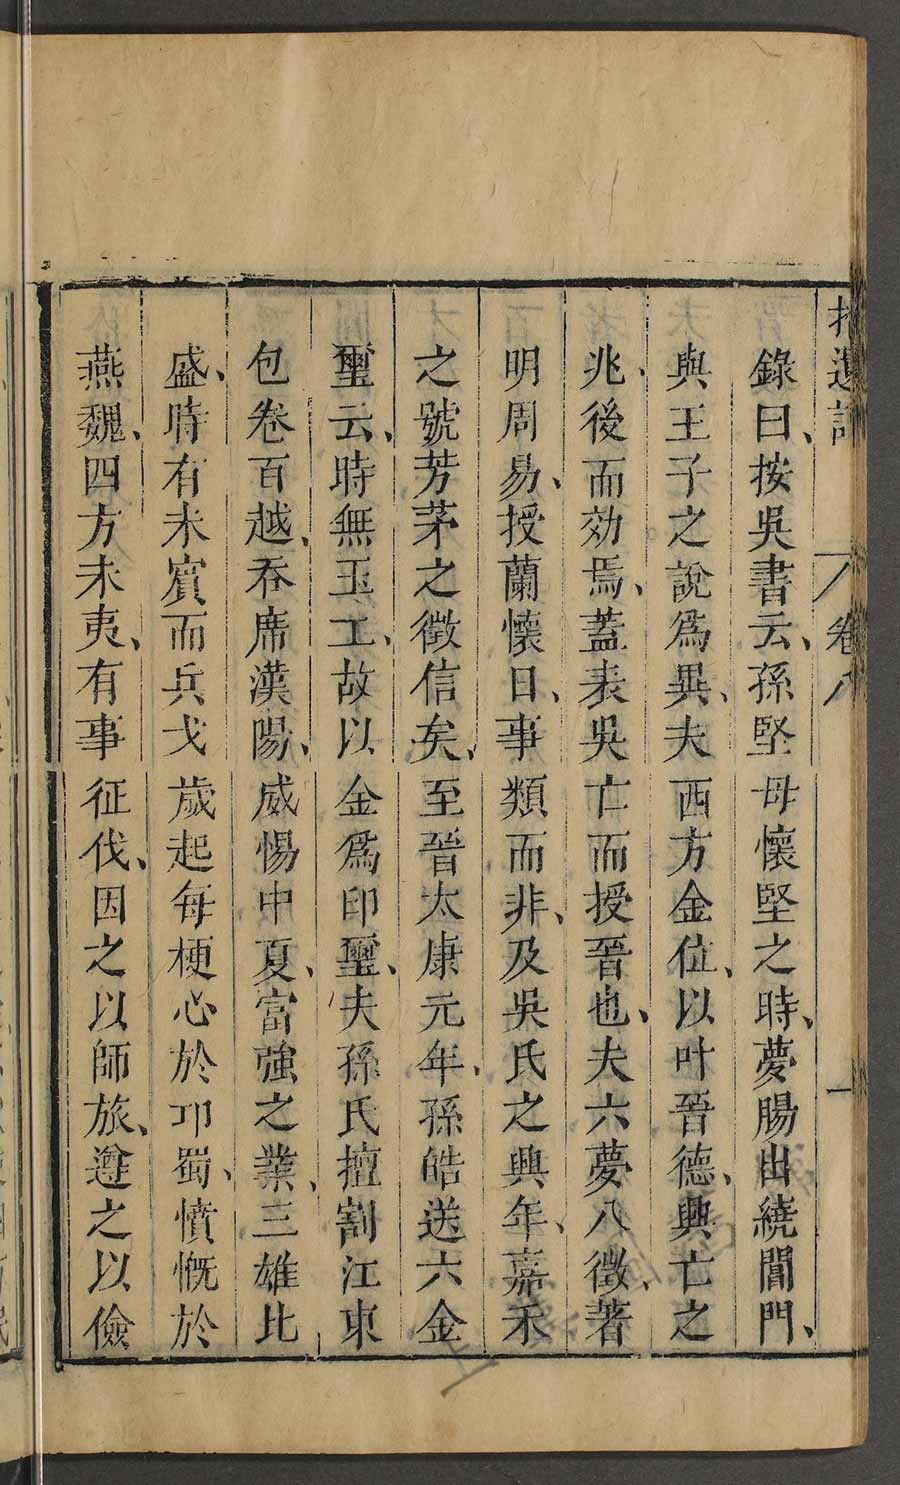 拾遺記 卷八 一
錄曰、按吳書云、孫堅母懷堅之時、夢腸出繞閶門、
與王子之說爲異、夫西方金位、以叶晉德、興亡之
兆、後而効焉、蓋表吳亡而授晉也、夫六夢八徵、著
明周易、授蘭懷日、事類而非、及吳氏之興年、嘉禾
之號芳茅之徵信矣、至晉太康元年、孫皓送六金
璽云、時無玉工、故以金爲印璽、夫孫氏擅割江東
包卷百越、吞席漢陽、威惕中夏、富強之業、三雄比
盛、時有未賓而兵戈歲起每梗心於邛蜀、憤慨於
燕魏、四方未夷、有事征伐、因之以師旅、遵之以儉